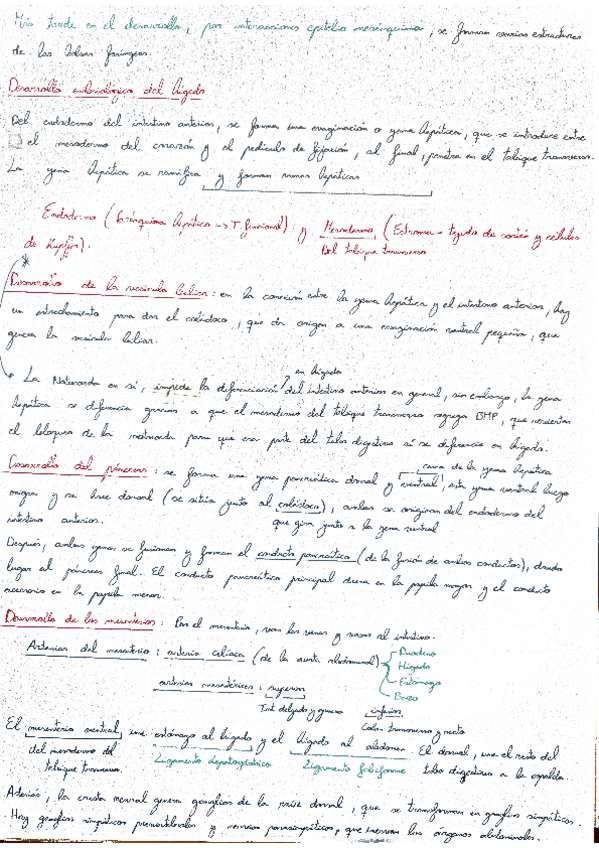 Más tarde en el desarrollo, por interacciones epitelio mesénquima, se forman varias estructuras
de las bolsas faríngeas.
Desarrollo embriológico del hígado
Del endodermo del intestino anterior, se forma una evaginación o yema hepática, que se introduce entre
el mesodermo del corazón y el pedículo de fijación, al final, penetra en el tabique transverso.
La yema hepática se ramifica y forman ramas hepáticas
Endodermo (Parénquima hepático → T. funcional) y Mesodermo (Estroma - tejido de sostén y células
de Kupffer). Del tabique transverso
*
Desarrollo de la vesícula biliar: en la conexión entre la yema hepática y el intestino anterior, hay
un estrechamiento para dar el colédoco, que da origen a una evaginación ventral pequeña, que
genera la vesícula biliar.
en hígado
La Notocorda en sí, impide la diferenciación del intestino anterior en general, sin embargo, la yema
hepática se diferencia gracias a que el mesodermo del tabique transverso segrega BMP, que
el bloqueo de la notocorda para que esa parte del tubo digestivo sí se diferencie en hígado.
cerca de la yema hepática
Desarrollo del páncreas: se forma una yema pancreática dorsal y ventral, esta yema ventral luego
migra y se hace dorsal (se sitúa junto al colédoco), ambas se originan del endodermo del
intestino anterior. que gira junto a la yema ventral
Después, ambas yemas se fusionan y forman el conducto pancreático (de la fusión de ambos conductos), dando
lugar al páncreas final. El conducto pancreático principal drena en la papila mayor y el conducto
accesorio en la papila menor.
Desarrollo de los mesenterios: Por el mesenterio, van las venas y vasos al intestino.
Arterias del mesenterio: arteria celíaca (de la aorta abdominal) Duodeno
Hígado
Estómago
Bazo
arterias mesentéricas: superior
Int delgado y grueso inferior
Colon transverso y recto
El mesenterio ventral une estómago al hígado y el hígado al abdomen. El dorsal, une el resto del
del mesodermo del Ligamento hepatogástrico Ligamento falciforme tubo digestivo a la espalda.
tabique transverso.
Además, la cresta neural genera ganglios de la raíz dorsal, que se transforman en ganglios simpáticos.
Hay ganglios simpáticos prevertebrales y nervios parasimpáticos, que inervan los órganos abdominales.